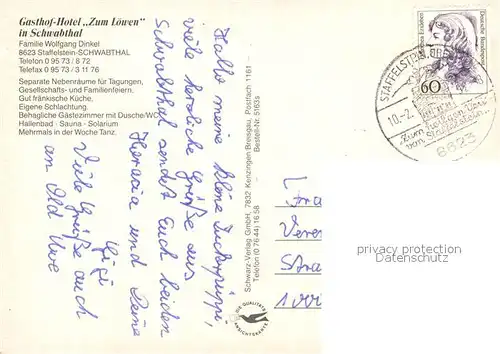 Gasthof-Hotel „Zum Löwen"
in Schwabthal
Familie Wolfgang Dinkel
8623 Staffelstein-SCHWABTHAL
Telefon 0 95 73 / 8 72
Telefax 0 95 73 / 3 11 76
Separate Nebenräume für Tagungen,
Gesellschafts- und Familienfeiern.
Gut fränkische Küche,
Eigene Schlachtung.
Behagliche Gästezimmer mit Dusche/WC
Hallenbad · Sauna · Solarium
Mehrmals in der Woche Tanz.
Hallo meine kleine
viele herzliche Grüße aus
Schwabthal sendet Euch beiden
und Deine
Gigi
Viele Grüße auch
an Old Uwe
Schwarz-Verlag GmbH, 7832 Kenzingen/Breisgau, Postfach 1161
Telefon (0 76 44) 16 58
Bestell-Nr. 5163s
DIE QUALITÄTS
ANSICHTSKARTE
Deutsche Bundespost
60
STAFFELSTEIN
10.-2.
"Zum heiligen Veit
von Staffelstein"
8623
Stra
1000
privacy protection
Datenschutz